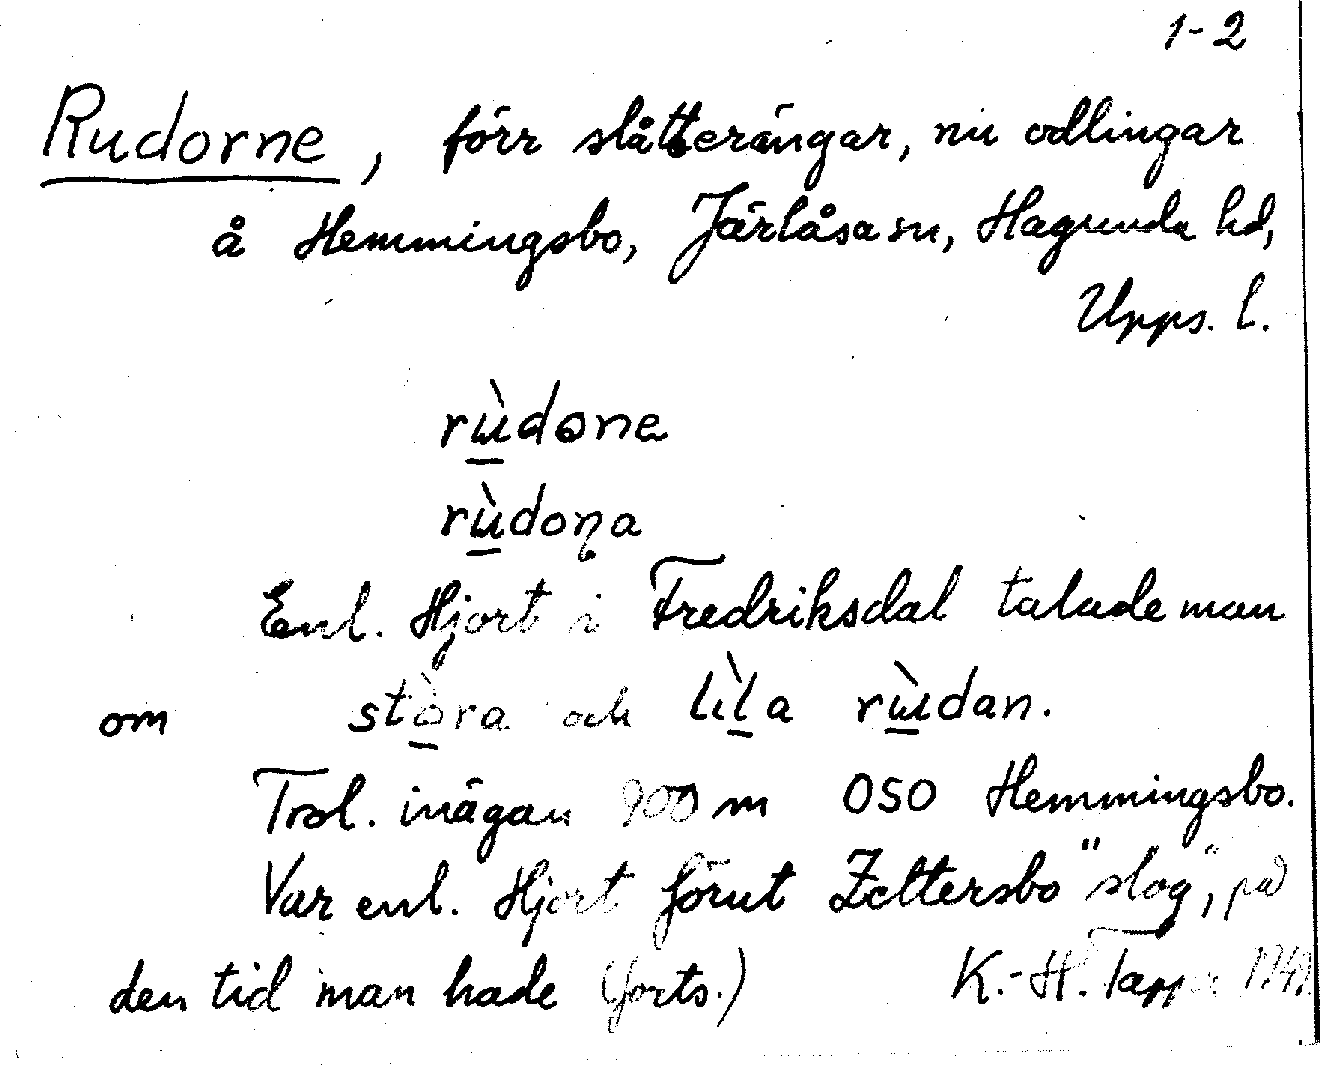 1-2
Rudorne, förr slåtterängar, nu odlingar
å Hemmingsbo, Järlåsa sn, Hagunda hd,
Upps. l.
rù̠done
rù̠doɳa
Enl. Hjort i Fredriksdal talade man
om stò̠ra och lìl̠a rù̠dan.
Trol. inägan 900 m OSO Hemmingsbo.
Var enl. Hjort förut Zettersbo "slog", på
den tid man hade (forts.) K.-H. Tapper